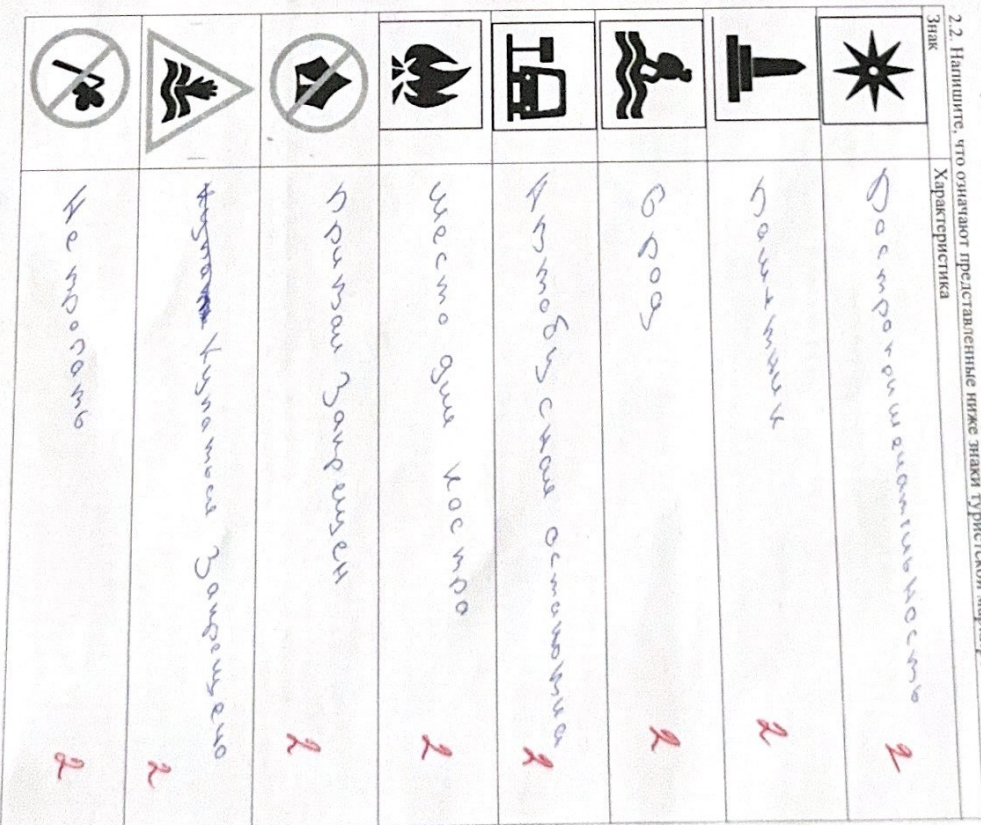 2.2. Напишите, что означают представленные ниже знаки туристской
Знак Характеристика
Достопримечательность 2
Памятник 2
Брод 2
Автобусная остановка 2
Место для костра 2
Привал Запрещен 2
Купаться Запрещено 2
Не трогать 2